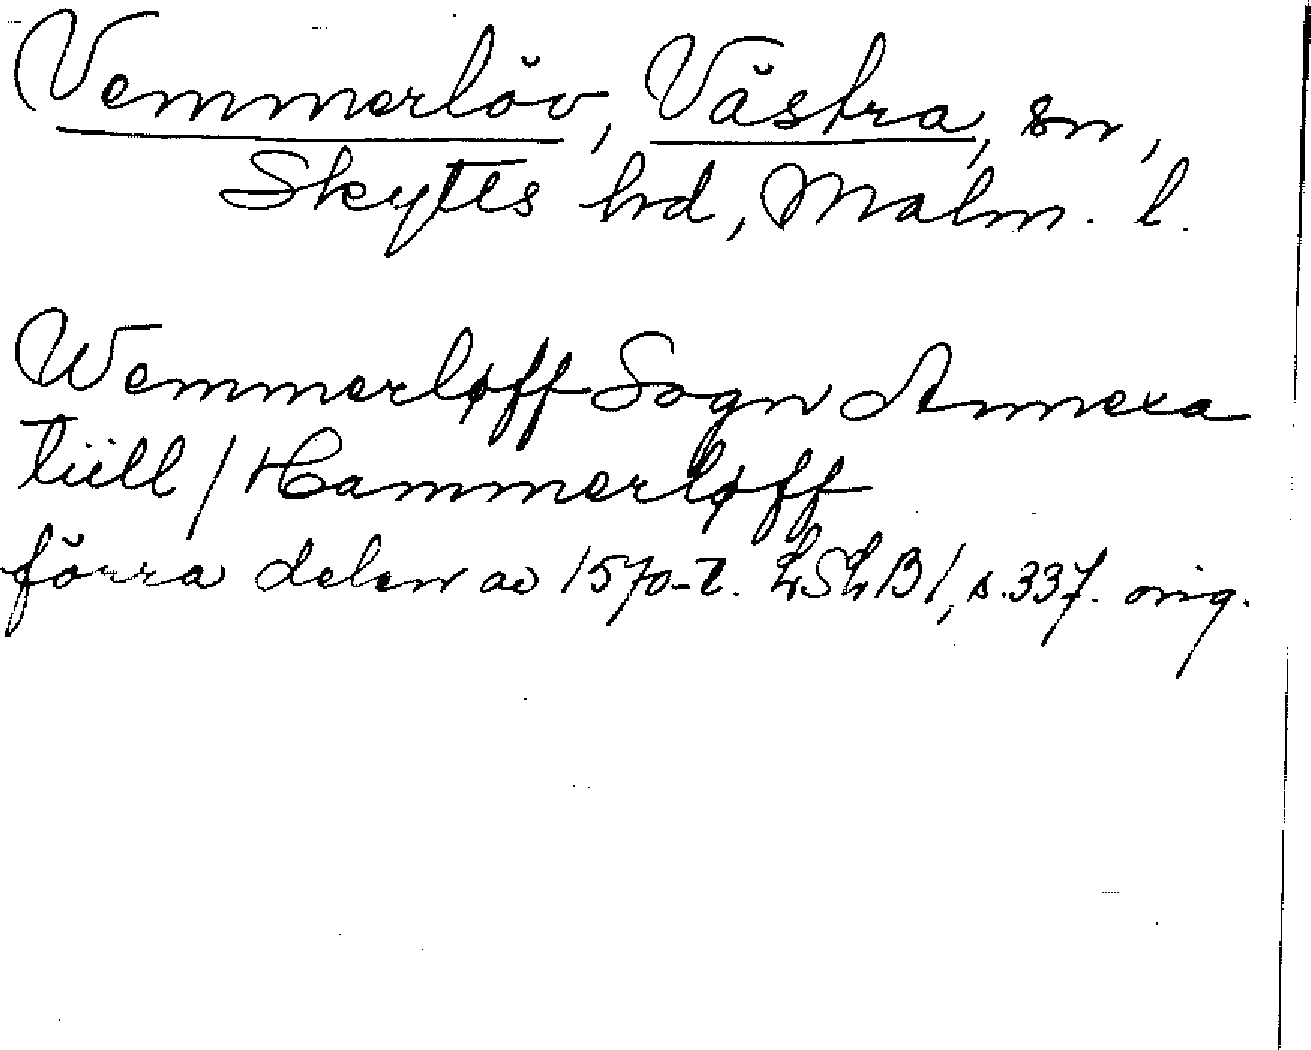 Vemmerlöv, Västra, sn,
Skytts hd, Malm. l.
Wemmerløff Sogn Annexa
tiill / Hammerløff
förra delen av 1570-t. LSLB 1, s. 337. orig.